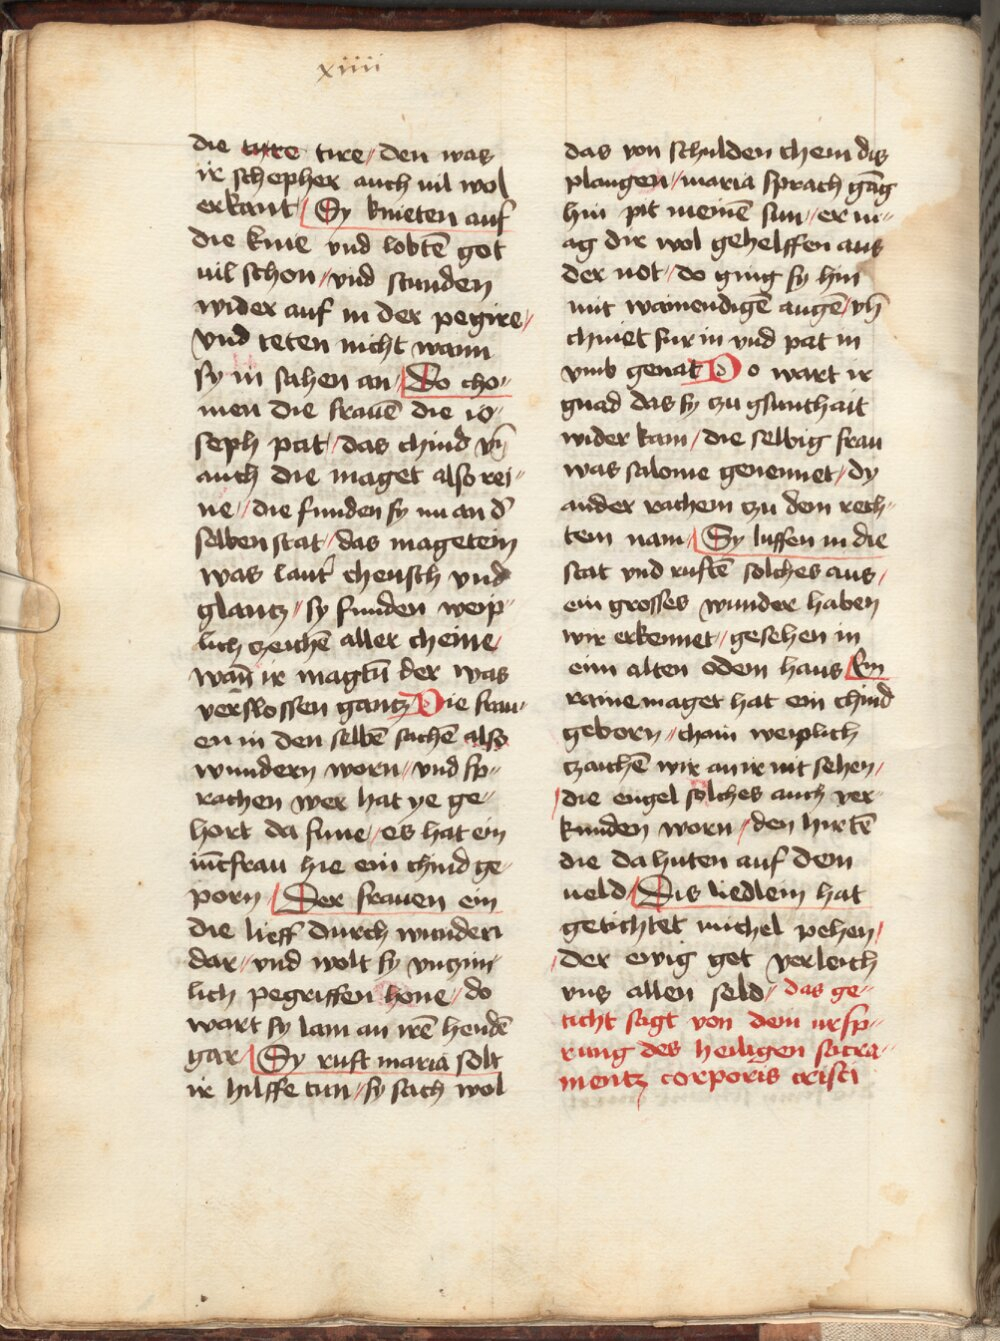 xiiii
die tyre tire / den was
ir schepher auch uil wol
erkant / Sy knieten auf
die knie vnd lobtē got
uil schon // vnd stunden
wider auf in der pegire /
vnd teten nicht wann
sy in sahen an / Do cho-
men die frauē die io-
seph pat / das chind vn̄
auch die maget also rei-
ne // die funden sy nu an d'
selben stat / das magetein
was laut' cheusch vnd
glantz // sy funden weip-
lich zeichē aller cheine /
wan̄ ir magtū der was
verslossen gantz Die frau-
en in den selbē sachē also
wundern worn // vnd sp-
rachen wer hat ye ge-
hort da fune / es hat ein
iūcfrau hie ein chind ge-
porn / Der frauen ein
die lieff durch wunderi
dar // vnd wolt sy vnczim-
lich pegriffen hone / do
wart sy lam an irē hendē
gar / Sy ruft maria solt
ir hilffe tun // sy sach wol
das von schulden chem dis
plaugen // maria sprach gāg
hin pit meinē sun // er m-
ag dir wol gehelffen aus
der not / do ging sy hin
mit wainendigē augē / vn̄
chniet fur in vnd pat in
vmb genat Do wart ir
gnad das sy zu gsunthait
wider kam / die selbig frau
was salome genennet / dy
ander rachem czu dem rech-
tem nam / Sy luffen in die
stat vnd ruftē solches aus /
ein grosses wunder haben
wir erkennet / gesehen in
eim alten odem haus / Ein
raine maget hat ein chind
geborn // chain weiplich
czaichē wir an ir nit sehen /
/ die engel solches auch ver-
kunden worn / den hirtē
die da huten auf dem
ueld / Dis liedlein hat
getichtet michel pehen /
/ der ewig got verleich
vns allen seld / das ge-
ticht sagt von dem ursp-
rung des heiligen sacra-
mentz corporis cristi